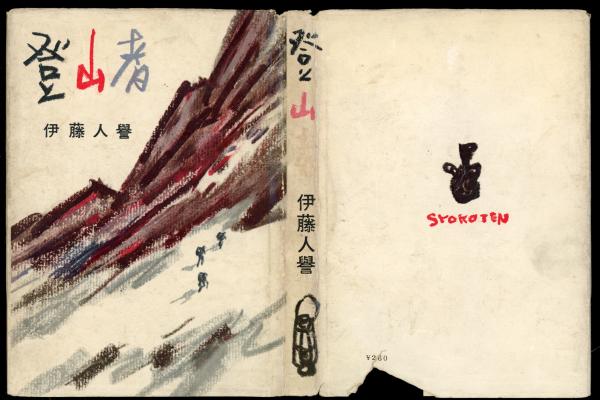 登山者
伊藤人譽
登山者
伊藤人譽
SYOKOTEN
¥260